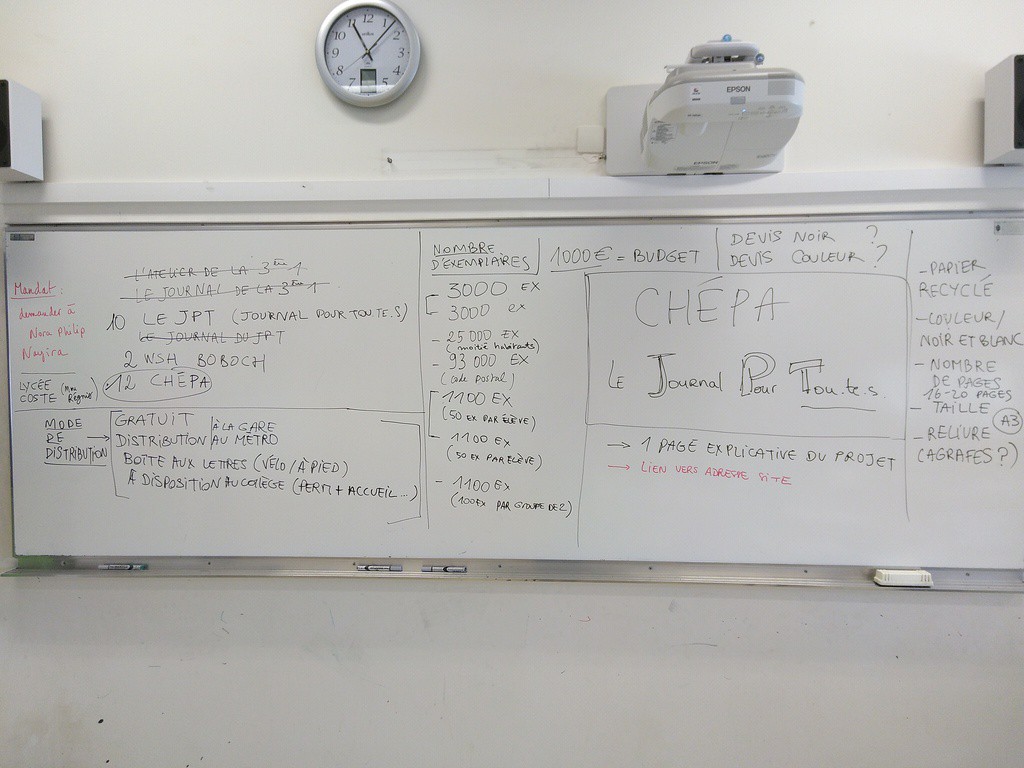 12
11
1
2
10
3
9
4
8
5
7
EPSON
EPSON
L'ATELIER DE LA 3ème 1
LE JOURNAL DE LA 3ème 1
10 LE JPT (JOURNAL POUR TOU.TE.S)
LE JOURNAL DU JPT
2 WSH BOBOCH
12 CHÉPA
Mandat :
demander à
Nora Philip
Nayira
LYCÉE
COSTE (Mme
Régnier)
MODE
DE
DISTRIBUTION
GRATUIT
DISTRIBUTION
À LA GARE
AU METRO
BOÎTE AUX LETTRES (VÉLO / À PIED)
À DISPOSITION AU COLLÈGE (PERM + ACCUEIL...)
NOMBRE
D'EXEMPLAIRES
3000 EX
3000 ex
- 25 000 EX
(moitié habitants)
- 93 000 EX
(code postal)
1100 EX
(50 EX PAR ÉLÈVE)
- 1100 EX
(50 EX PAR ELÈVE)
- 1100 EX
(100 EX PAR GROUPE DE 2)
1000 € = BUDGET
DEVIS NOIR ?
DEVIS COULEUR ?
CHÉPA
LE JOURNAL POUR TOU.TE.S.
→ 1 PAGE EXPLICATIVE DU PROJET
→ LIEN VERS ADRESSE SITE
- PAPIER
RECYCLÉ
- COULEUR /
NOIR ET BLANC
- NOMBRE
DE PAGES
16-20 PAGES
- TAILLE
A3
- RELIURE
(AGRAFES ?)